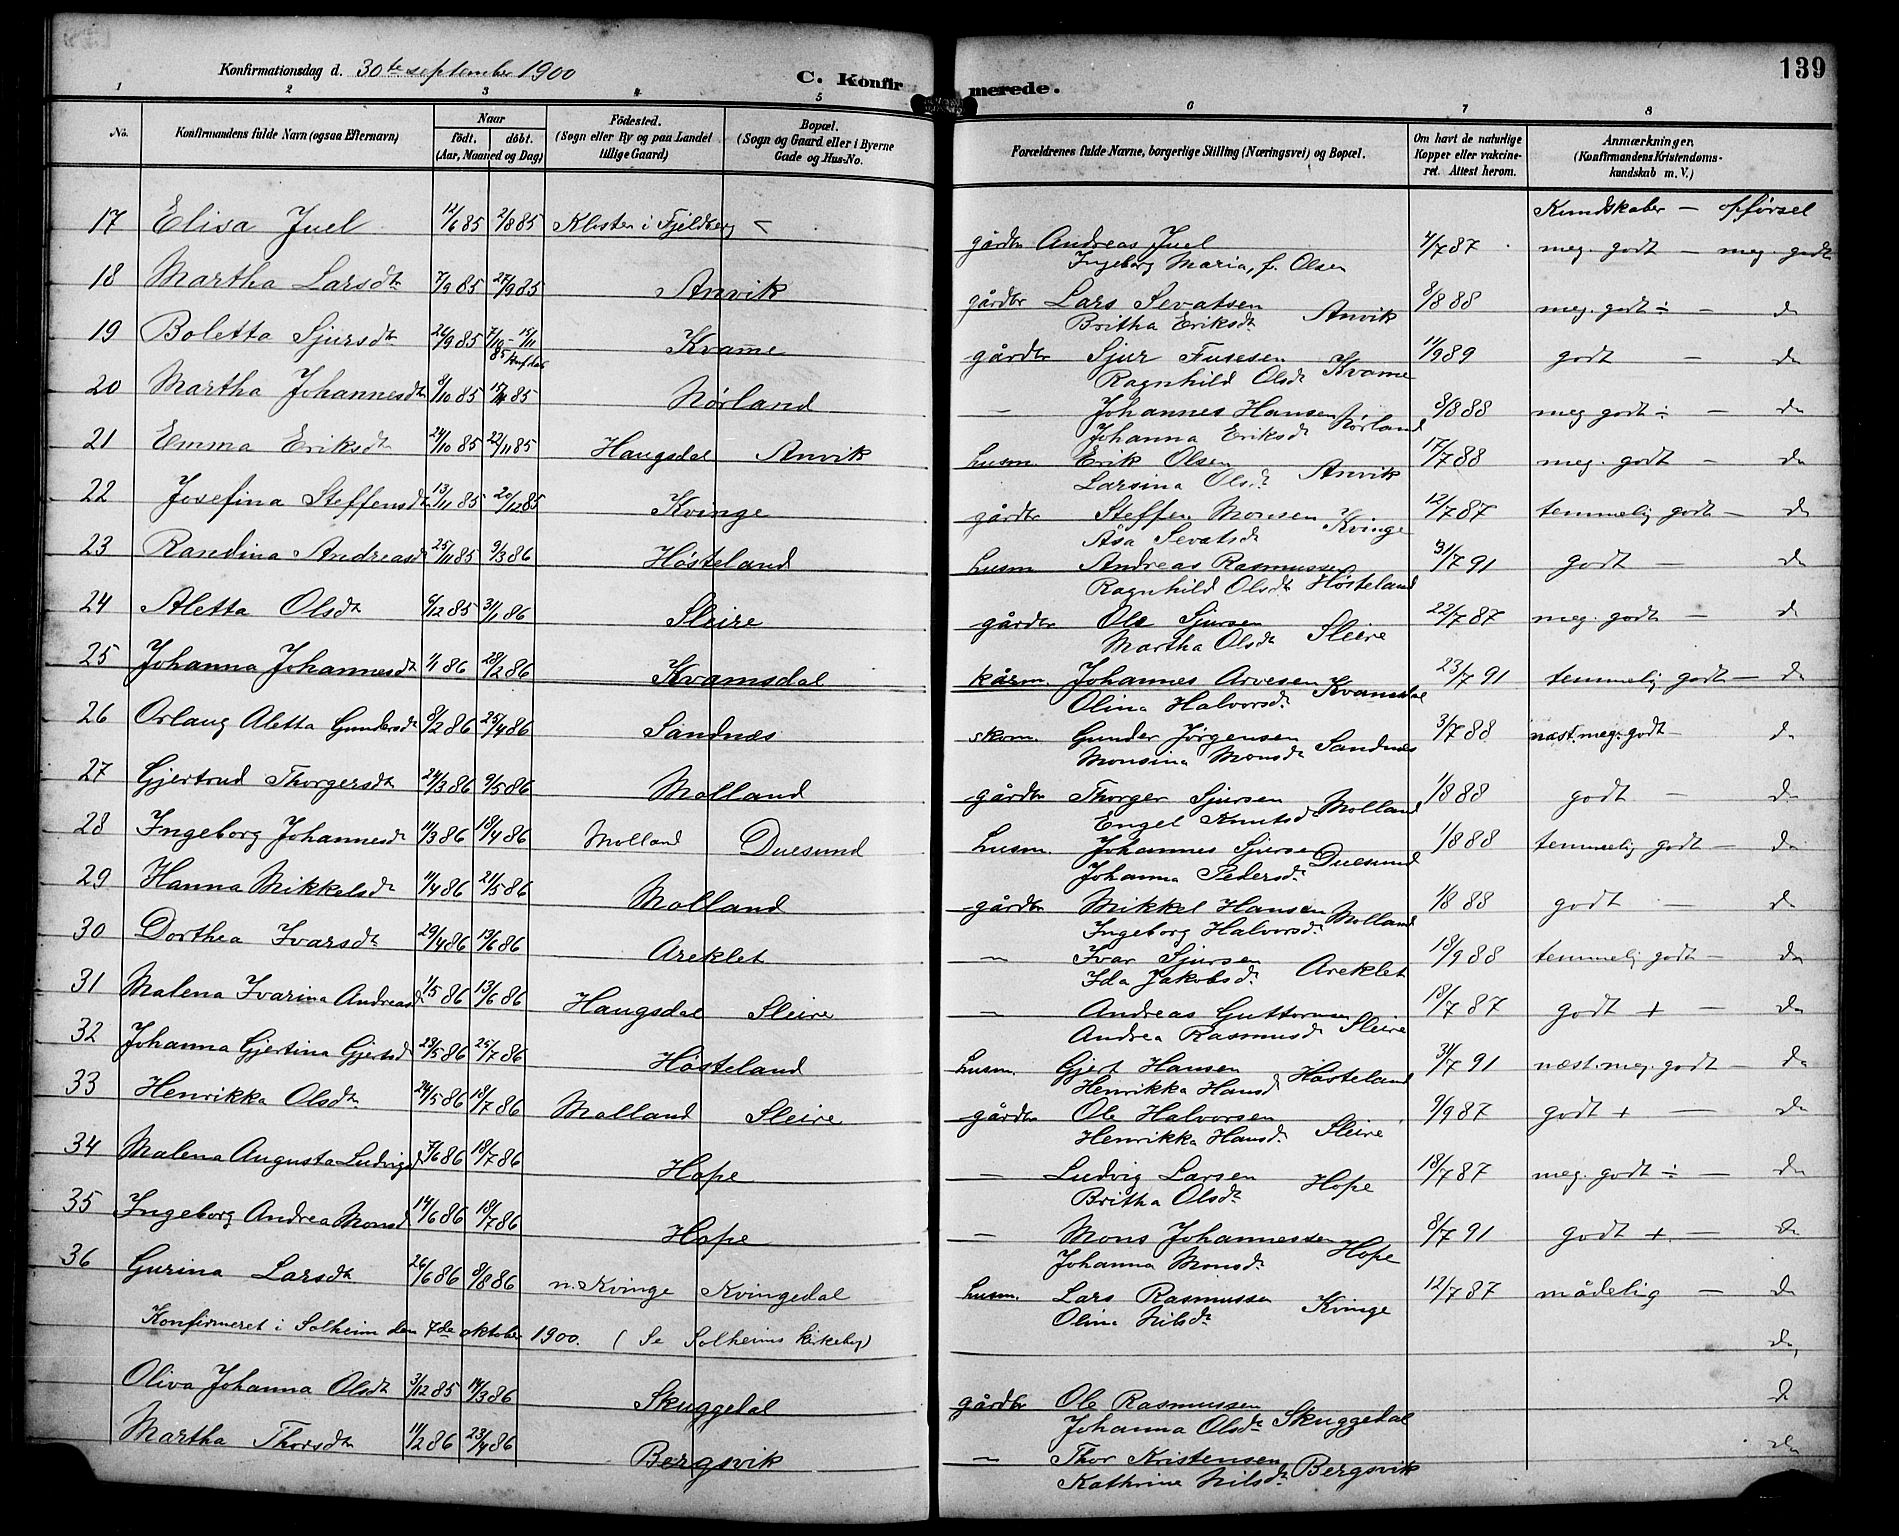 Konfirmationsdag d. 30te september 1900
C. Konfirmerede.
139
1 2 3 4 5 6 7 8
No. Konfirmandens fulde Navn (ogsaa Efternavn) Naar födt. döbt. (Aar, Maaned og Dag) Födested. (Sogn eller By og paa Landet tillige Gaard) Bopæl. (Sogn og Gaard eller i Byerne Gade og Hus-No. Forældrenes fulde Navne, borgerlige Stilling (Næringsvei) og Bopæl. Om havt de naturlige Kopper eller vakcineret. Attest herom. Anmærkninger. (Konfirmandens Kristendomskundskab m. V.)
Kundskaber — opförsel
17 Elisa Juel 12/6 85 2/8 85 Kloster i Fjeldberg gårdbr Andreas Juel 4/7 87 meg. godt — meg. godt
Ingeborg Maria, f. Olsen
18 Martha Larsdtr 7/9 85 27/9 85 Anvik gårdbr Lars Sevatsen Anvik 8/8 88 meg. godt ÷ — do
Britha Eriksdtr
19 Boletta Sjursdtr 26/9 85 Kvame gårdbr Sjur Fusesen Kvame 11/9 89 godt — do
Ragnhild Olsdtr
20 Martha Johannesdtr 8/10 85 Nörland — Johannes Hansen Nörland 8/8 88 meg godt ÷ — do
Johanna Eriksdtr
21 Emma Eriksdtr 24/10 85 22/11 85 Haugsdal Anvik husm. Erik Olsen Anvik 17/7 88 meg. godt — do
Larsina Olsdtr
22 Josefina Steffensdtr 13/11 85 20/12 85 Kvinge gårdbr Steffen Monsen Kvinge 12/7 87 temmelig godt — do
Åsa Sevatsdtr
23 Randina Andreasdtr 25/11 85 9/3 86 Hösteland husm Andreas Rasmussen Hösteland 31/7 91 godt — do
Ragnhild Olsdtr
24 Aletta Olsdtr 6/12 85 31/1 86 Sleire gårdbr Ole Sjursen Sleire 22/7 87 meg. godt — do
Martha Olsdtr
25 Johanna Johannesdtr 1/1 86 28/2 86 Kvamsdal kårm. Johannes Arvesen Kvamsdal 23/7 91 temmelig godt — do
Olina Halvorsdtr
26 Orlaug Aletta Gundersdtr 8/2 86 25/4 86 Sandnæs skom. Gunder Jörgensen Sandnæs 3/7 88 næst. meg. godt — do
Monsina Monsdtr
27 Gjertrud Thorgersdtr 24/3 86 9/5 86 Molland gårdbr Thorger Sjursen Molland 1/8 88 godt — do
Engel Knutsdtr
28 Ingeborg Johannesdtr 11/3 86 18/4 86 Molland Duesund husm. Johannes Sjursen Duesund 1/8 88 temmelig godt — do
Johanna Pedersdtr
29 Hanna Mikkelsdtr 11/4 86 21/5 86 Molland gårdbr Mikkel Hansen Molland 1/8 88 godt — do
Ingeborg Halvorsdtr
30 Dorthea Ivarsdtr 29/4 86 13/6 86 Areklet — Ivar Sjursen Areklet 18/9 88 temmelig godt — do
Ida Jakobsdtr
31 Malena Ivarina Andreasdtr 1/5 86 13/6 86 Haugsdal Sleire — Andreas Guttormsen Sleire 18/7 87 godt + — do
Andrea Rasmusdtr
32 Johanna Gjertina Gjertsdtr 23/5 86 25/7 86 Hösteland husm. Gjert Hansen Hösteland 31/7 91 næst. meg. godt — do
Henrikka Hansdtr
33 Henrikka Olsdtr 24/5 86 18/7 86 Molland Sleire gårdbr Ole Halvorsen Sleire 9/9 87 godt + — do
Henrikka Hansdtr
34 Malena Augusta Ludvigsdtr 7/6 86 18/7 86 Hope — Ludvig Larsen Hope 18/7 87 meg. godt ÷ — do
Britha Olsdtr
35 Ingeborg Andrea Monsdtr 14/6 86 18/7 86 Hope — Mons Johannessen Hope 8/7 91 godt + — do
Johanna Monsdtr
36 Gurina Larsdtr 26/6 86 8/8 86 n. Kvinge Kvingedal husm. Lars Rasmussen Kvinge 12/7 87 mådelig — do
Olina Nilsdtr
Konfirmeret i Solheim den 7de oktober 1900. (Se Solheims kirkebog) do
Oliva Johanna Olsdtr 3/12 85 14/3 86 Skuggedal gårdbr Ole Rasmussen Skuggedal do
Johanna Olsdtr
Martha Thorsdtr 11/2 86 23/4 86 Bergsvik — Thor Kristensen Bergsvik do
Kathrine Nilsdtr